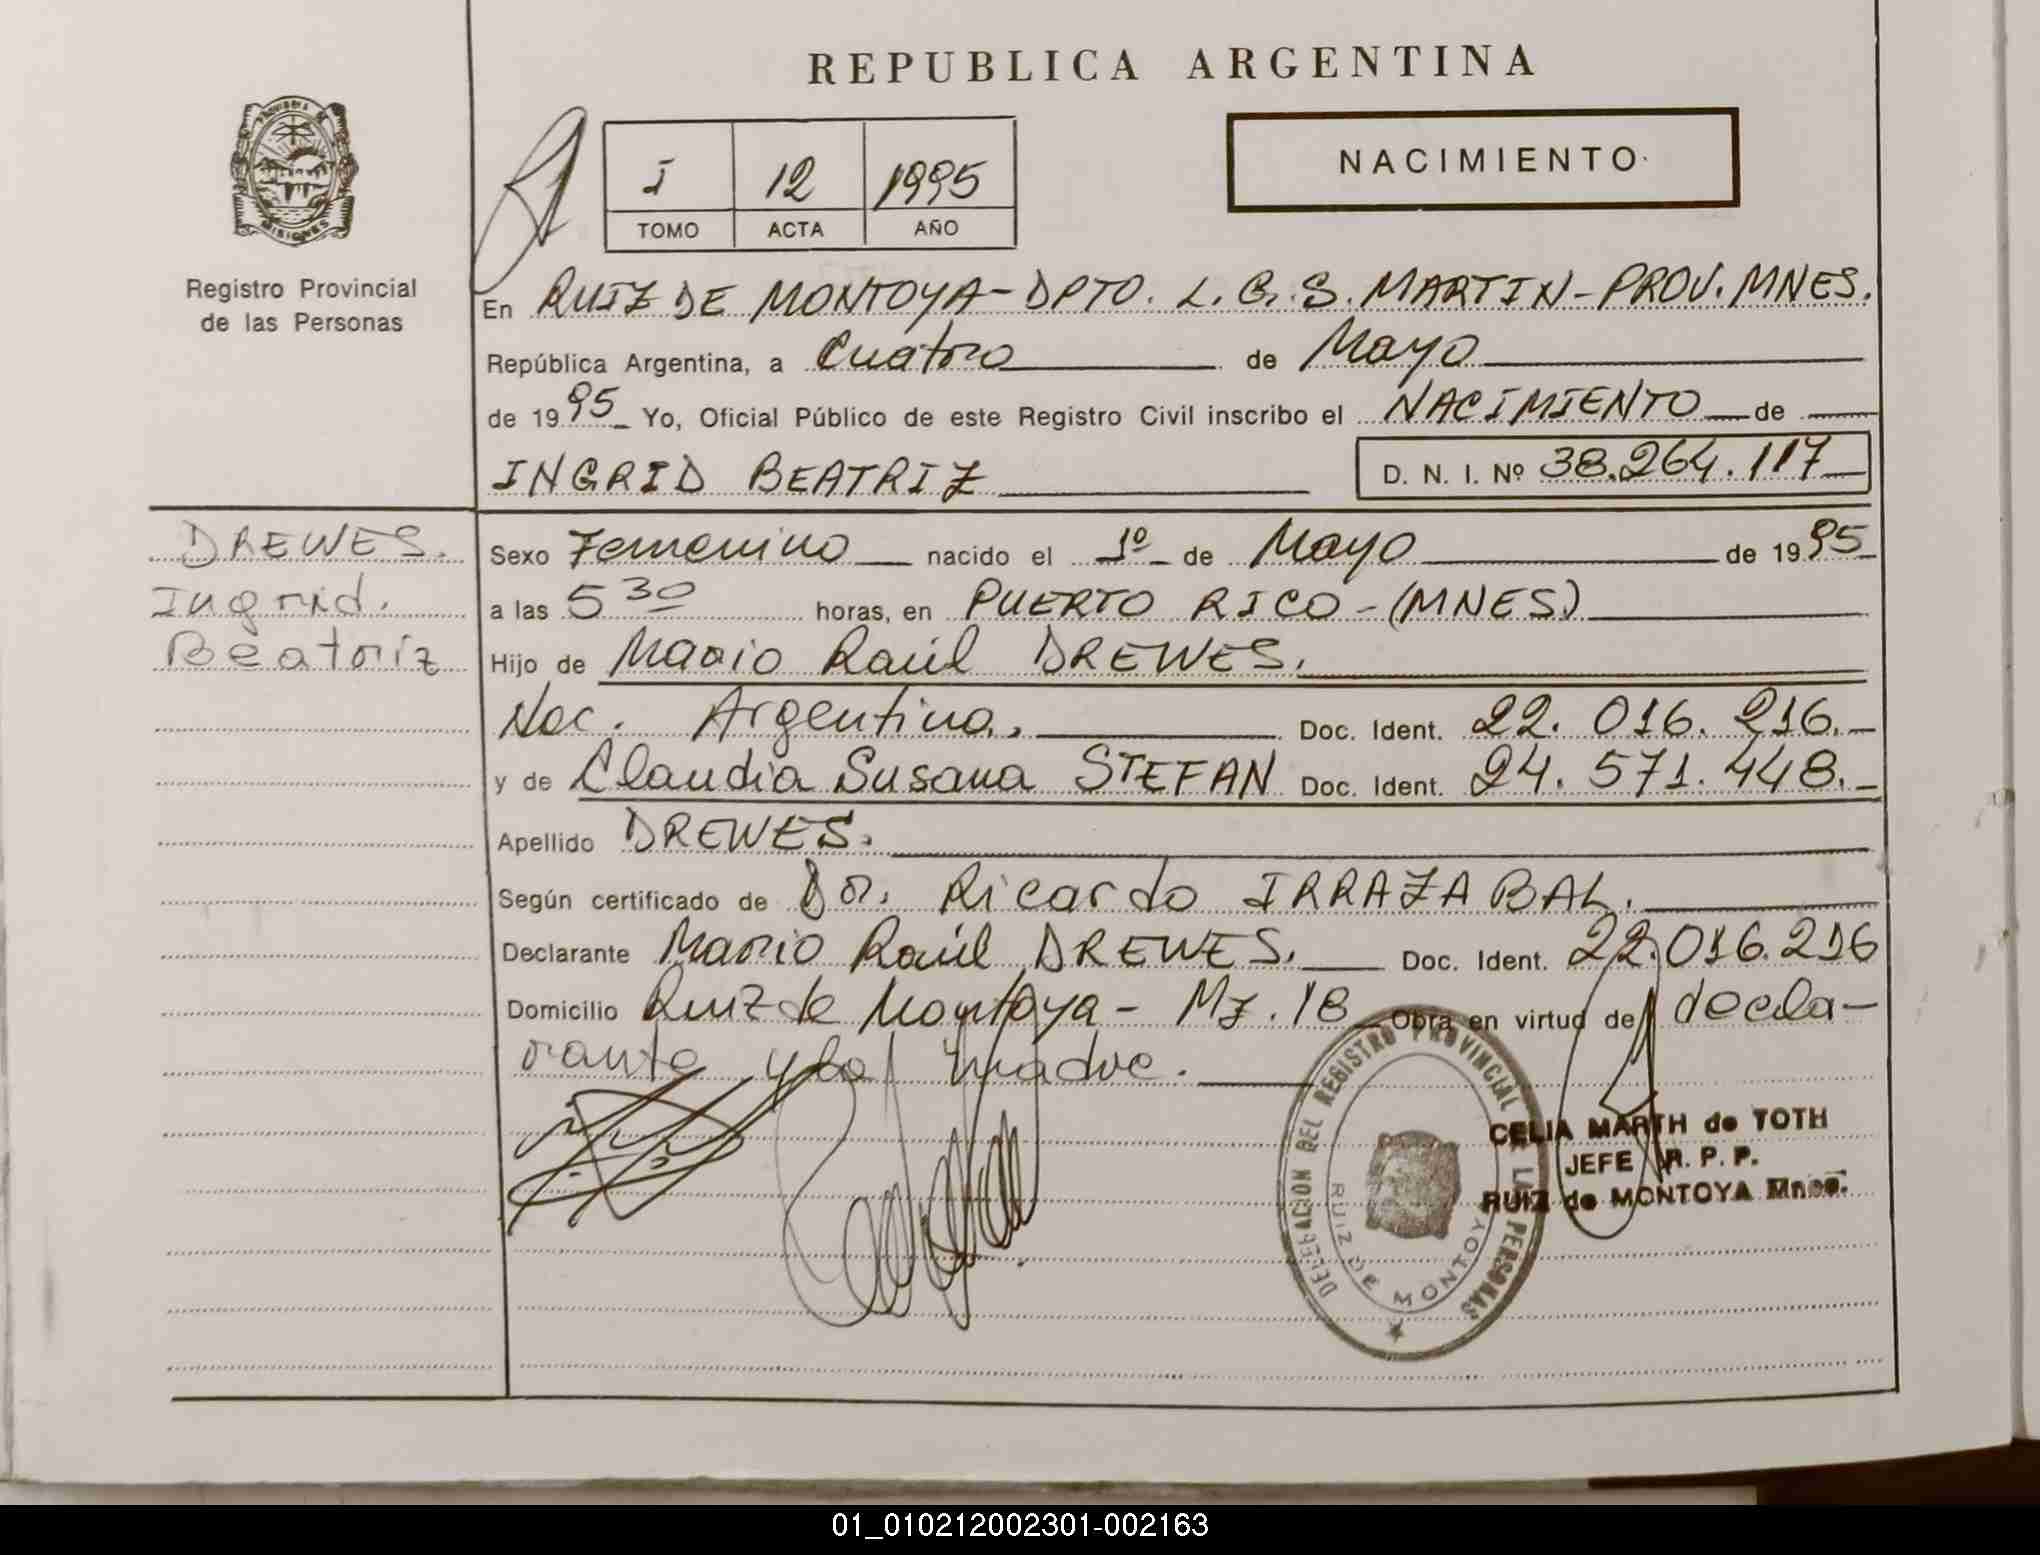 REPUBLICA ARGENTINA
PROVINCIA
MISIONES
Registro Provincial
de las Personas
I 12 1995
TOMO ACTA AÑO
NACIMIENTO
En RUIZ DE MONTOYA - DPTO. L. G. S. MARTIN - PROV. MNES.
República Argentina, a Cuatro de Mayo
de 1995 Yo, Oficial Público de este Registro Civil inscribo el NACIMIENTO de
INGRID BEATRIZ
D. N. I. Nº 38.264.117
DREWES.
Ingrid.
Beatriz
Sexo Femenino nacido el 1º de Mayo de 1995
a las 5 30 horas, en PUERTO RICO - (MNES)
Hijo de Mario Raúl DREWES.
Nac. Argentina. Doc. Ident. 22. 016. 216.
y de Claudia Susana STEFAN Doc. Ident. 24. 571. 448.
Apellido DREWES.
Según certificado de Dr. Ricardo IRRAZABAL.
Declarante Mario Raúl DREWES. Doc. Ident. 22.016.216
Domicilio Ruiz de Montoya - Mz. 18 Obra en virtud de decla-
rante y la madre.
DELEGACION DEL REGISTRO PROVINCIAL DE LAS PERSONAS
RUIZ DE MONTOYA
CELIA MARTH de TOTH
JEFE R. P. P.
RUIZ de MONTOYA Mnes.
01_010212002301-002163